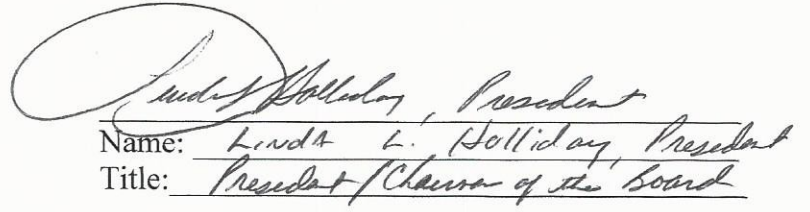 Linda L Holliday, President
Name: Linda L. Holliday, President
Title: President/Chairman of the Board